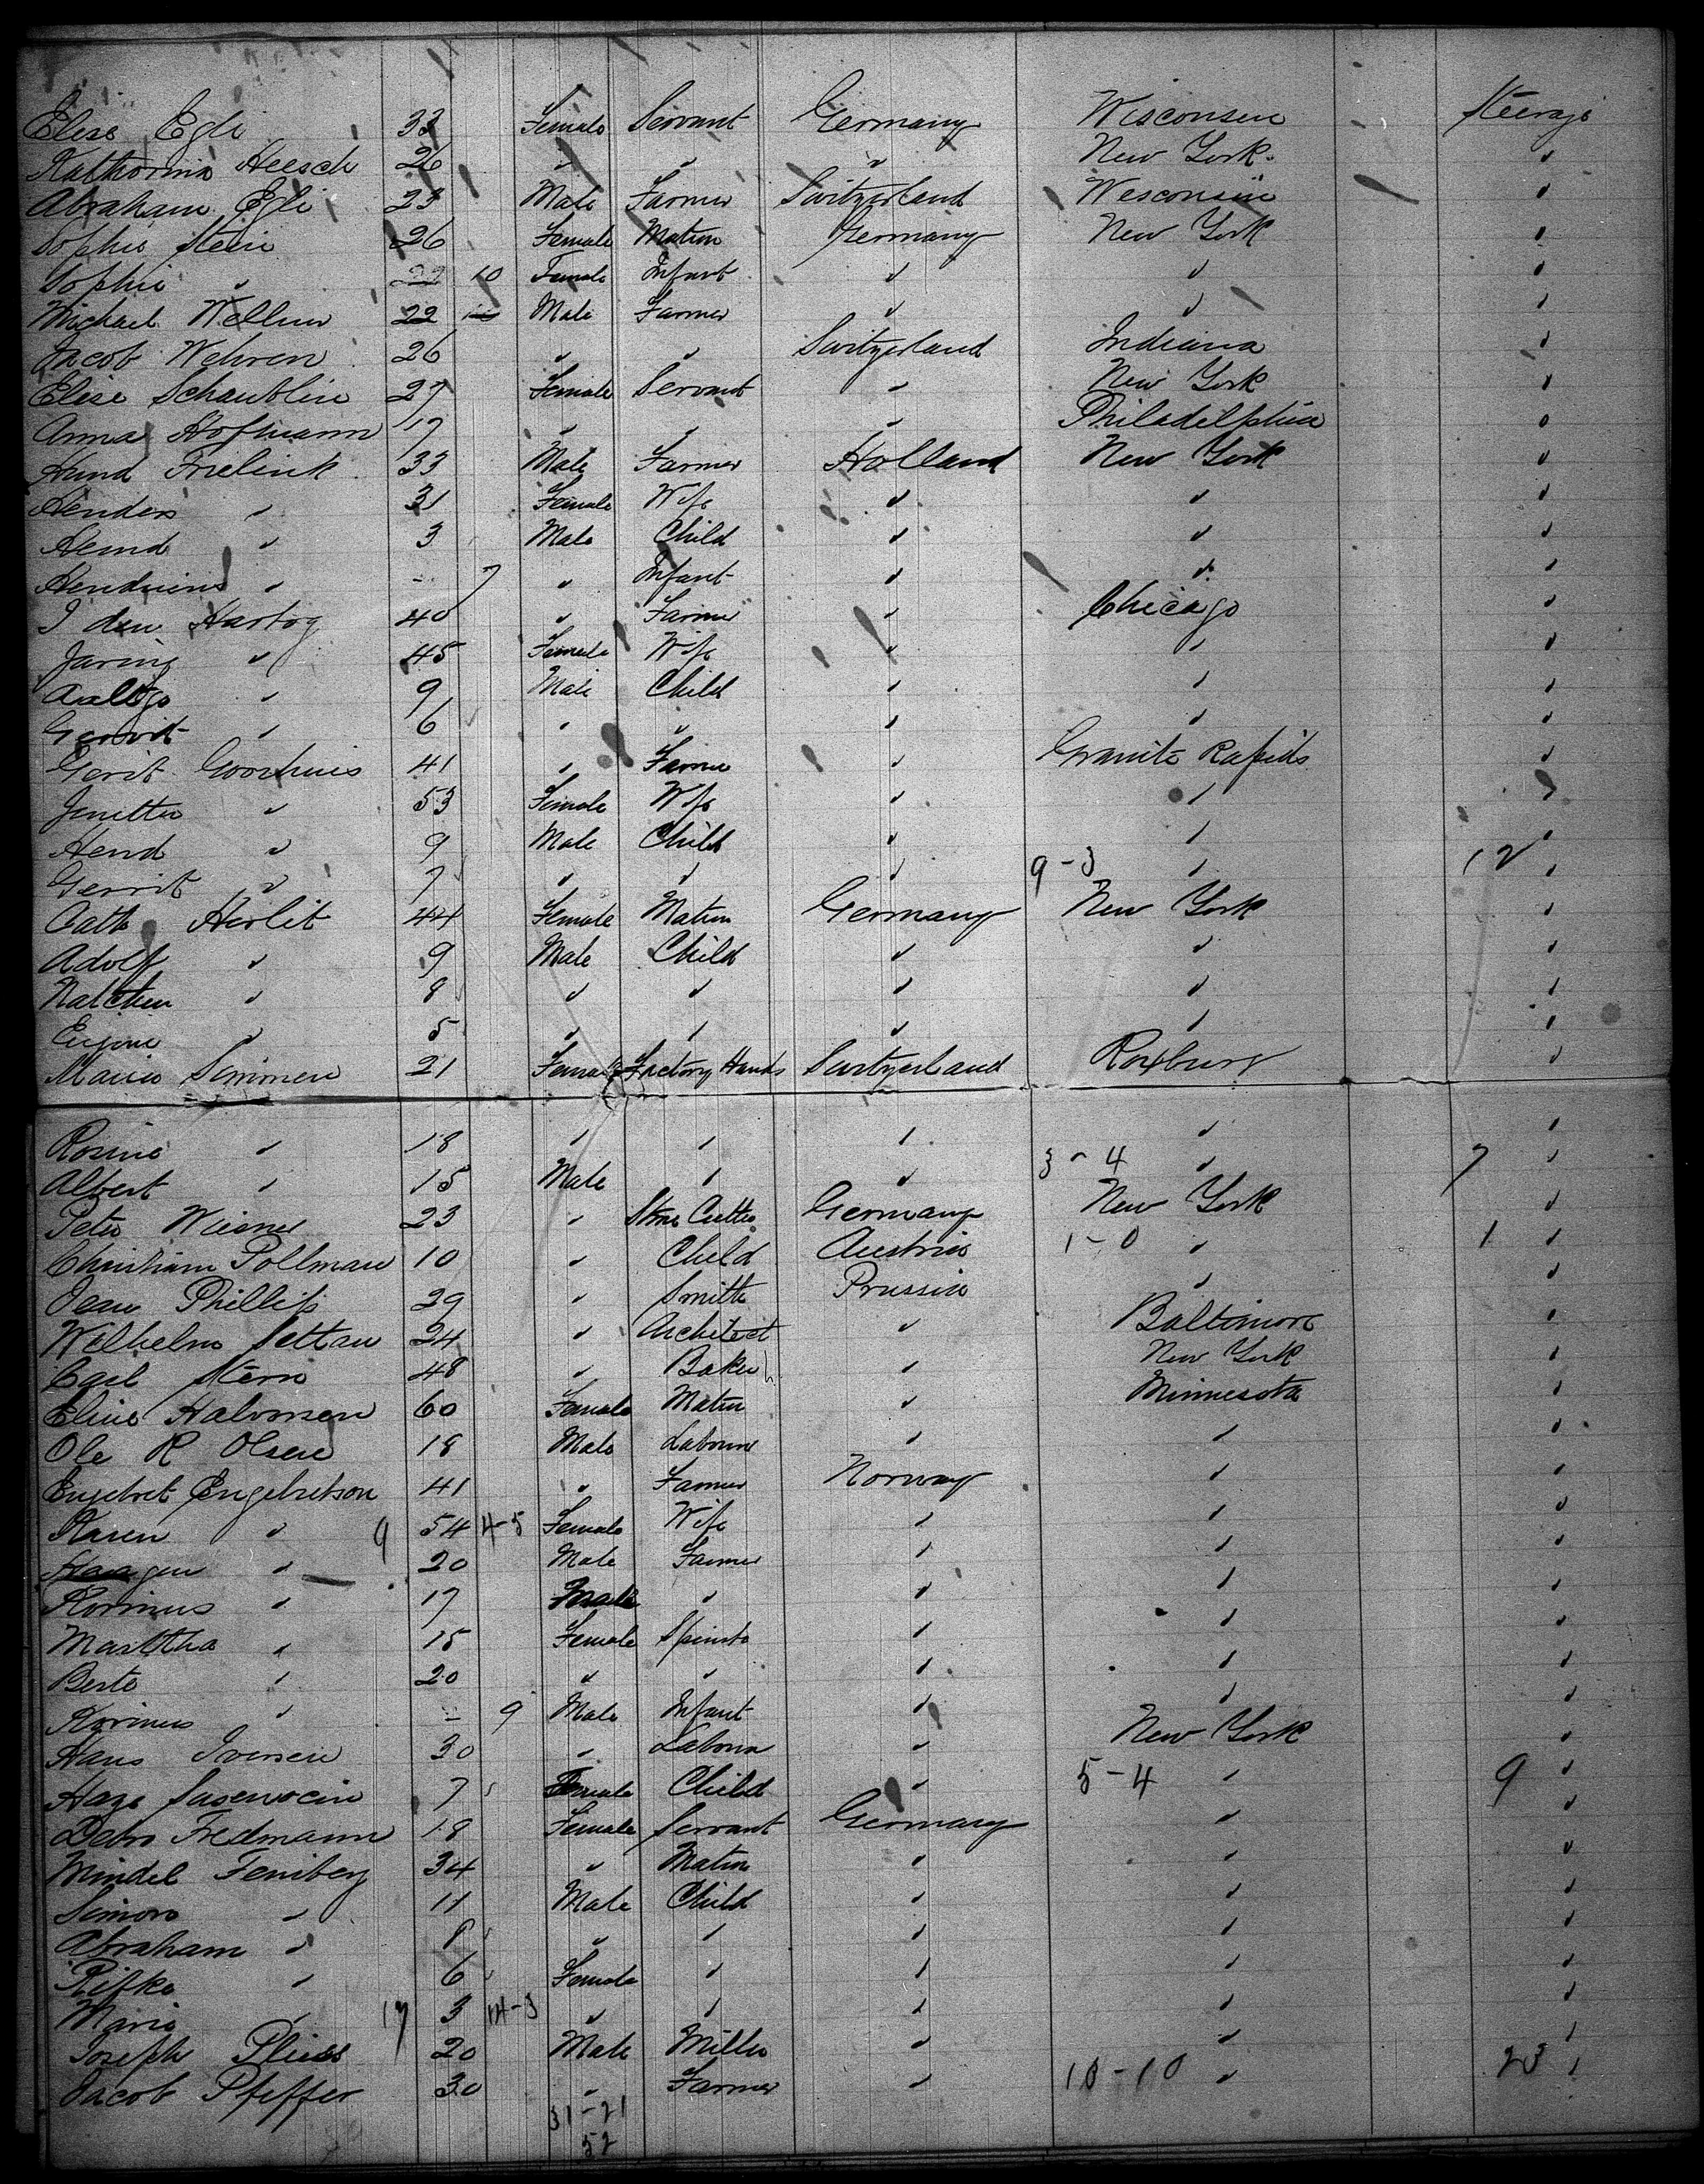 Elise Egli 33 Female Servant Germany Wisconsin Steerage
Katharina Heesch 26 " " " New York. "
Abraham Egli 23 Male Farmer Switzerland Wesconsin "
Sophie Stein 26 Female Matron Germany New York "
Sophie " 10 Female Infant " " "
Michael Wellun 22 Male Farmer " " "
Jacob Wehren 26 " " Switzerland Indiana "
Elise Schaublin 27 Female Servant " New York "
Anna Hofmann 17 " " " Philadelphia "
Hend Frielink 33 Male Farmer Holland New York "
Henders " 31 Female Wife " " "
Hernd " 3 Male Child " " "
" - 7 " Infant " " "
I den Hartog 40 " Farmer " Chicago "
Jaring " 45 Female Wife " " "
Aaltje " 9 Male Child " " "
Gerrit " 6 " " " " "
Gerit Goorhuis 41 " Farmer " Granite Rapids "
Jenitten " 53 Female Wife " " "
Hend " 9 Male Child " " "
Gerrit " 7 " " " 9-3 " 12 "
Cath Herlit 44 Female Matron Germany New York "
Adolf " 9 Male Child " " "
Natchen " 8 " " " " "
Eugine " 5 " " " " "
Maria Simmen 21 Female Factory Hands Switzerland Roxbury "
Rosine " 18 " " " " "
Albert " 15 Male " " 3-4 " 7 "
Peter Wiesner 23 " Stone Cutter Germany New York "
Christian Pollman 10 " Child Austria 1-0 " 1 "
Jean Phillip 29 " Smith Prussia " "
Wilhelm Settau 24 " Architect " Baltimore "
Carl Stern 48 " Baker " New York "
Eline Halvorsen 60 Female Matron " Minnesota "
Ole R Olsen 18 Male Labourer " " "
Engebret Engebretson 41 " Farmer Norway " "
Karen " 9 54 4-5 Female Wife " " "
Haagen " 20 Male Farmer " " "
" 17 Male " " " "
Marttha " 15 Female Spinster " " "
Berte " 20 " " " " "
" - 9 Male Infant " " "
Hans Iversen 30 " Labourer " New York "
7 Female Child " 5-4 " 9 "
Fredmann 18 Female Servant Germany " "
Mindel Feinberg 34 " Matron " " "
Simon " 11 Male Child " " "
Abraham " 8 " " " " "
Rifke " 6 Female " " " "
Maria " 17 3 14-3 " " " " "
Joseph Pliess 20 Male Miller " " "
Jacob Pfeffer 30 " Farmer " 10-10 " 23 "
31-21
52